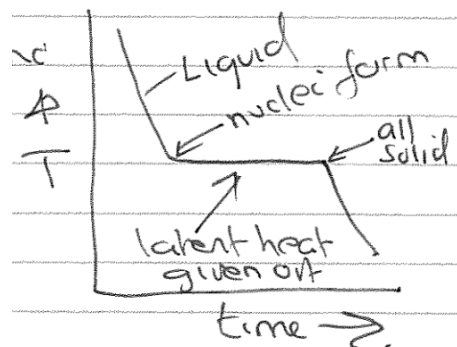 Liquid
nuclei form
all
solid
T
latent heat
given out
time